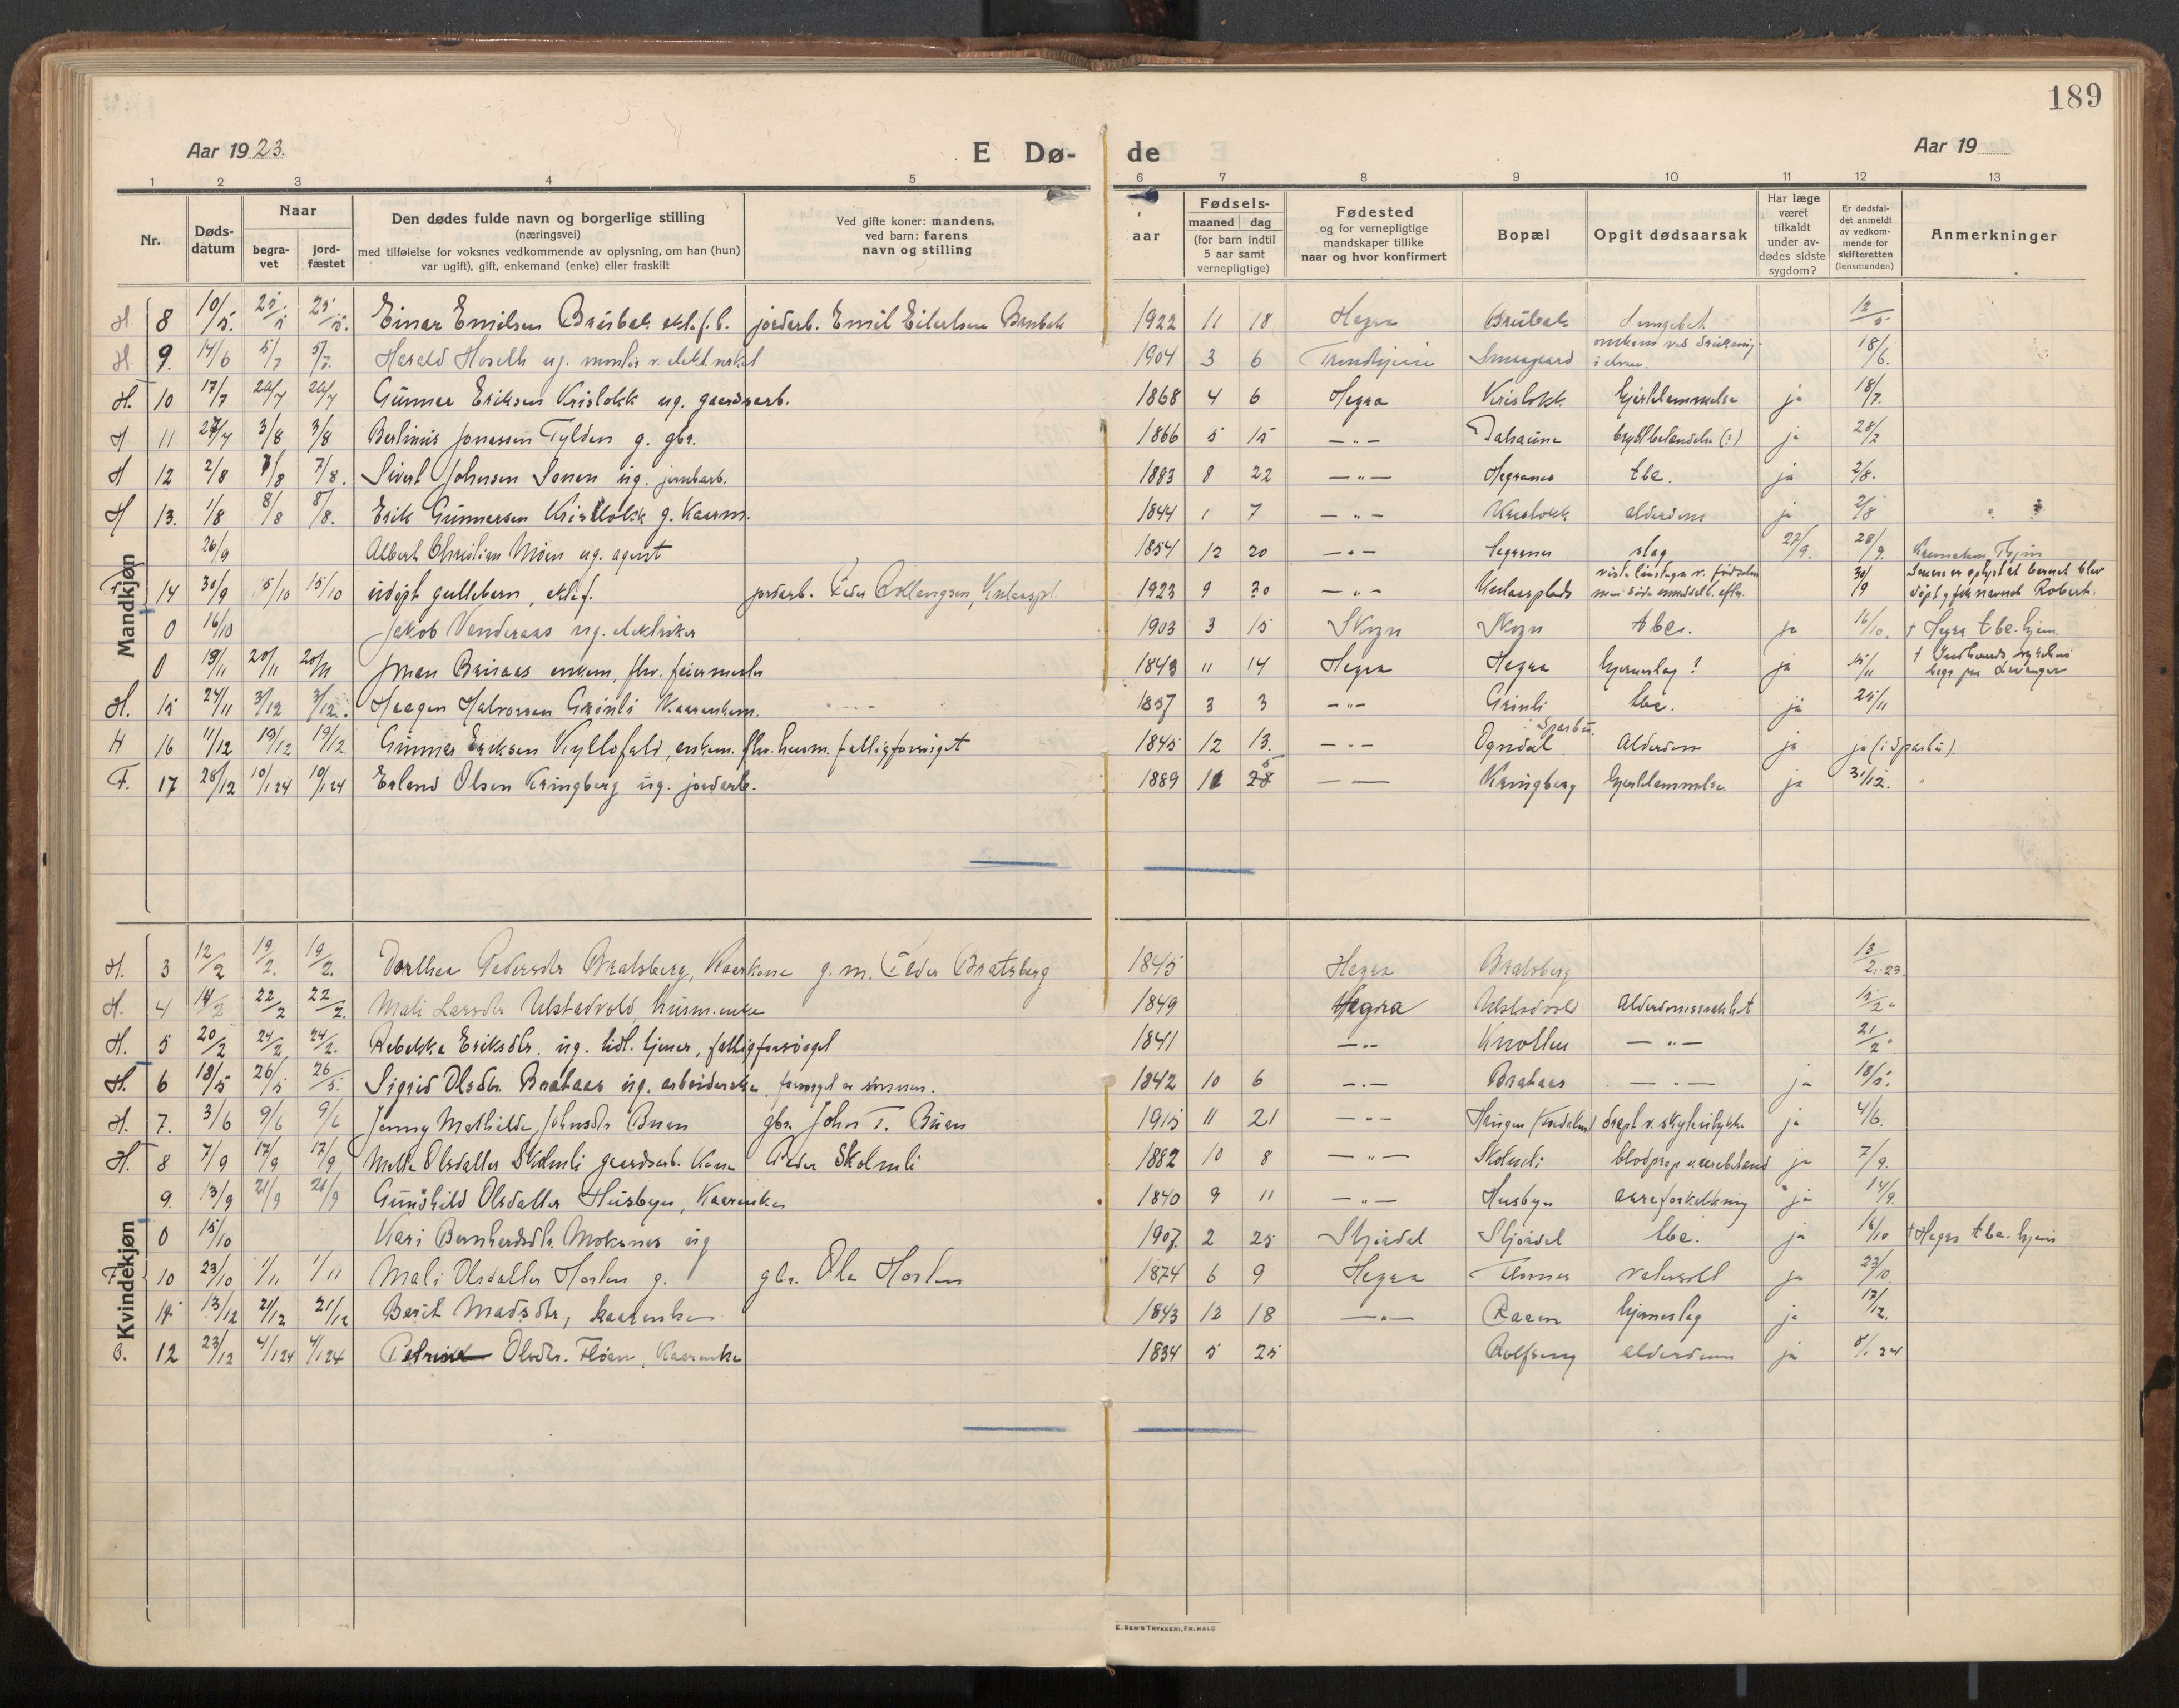 189
Aar 1923. E Dø- de Aar 19
1 2 3 4 5 6 7 8 9 10 11 12 13
Nr. Døds-datum Naar begra-vet jord-fæstet Den dødes fulde navn og borgerlige stilling (næringsvei) med tilføielse for voksnes vedkommende av oplysning, om han (hun) var ugift), gift, enkemand (enke) eller fraskilt Ved gifte koner: mandens, ved barn: farens navn og stilling aar Fødsels- maaned dag (for barn indtil 5 aar samt vernepligtige) Fødested og for vernepligtige mandskaper tillike naar og hvor konfirmert Bopæl Opgit dødsaarsak Har læge været tilkaldt under av-dødes sidste sygdom? Er dødsfal-det anmeldt av vedkom-mende for skifteretten (lensmanden) Anmerkninger
Mandkjøn
H. 8 10/5. 25/5 25/5. Einar Emilsen Brúbak ekte f. b. jordarb. Emil Eilertsen Brubak 1922 11 18 Hegra Brúbak 12/5
H. 9. 14/6 5/7 5/7. Harald Hoseth ug. montør v. elekt. verket 1904 3 6 Trondhjem omkom ved drukning i elven. 18/6.
H. 10 17/7 24/7 24/7 Gúnnar Eriksen Krislokk ug. gaardsarb. 1868 4 6 Hegra Krislokk hjerklammelse ja 18/7.
H 11 27/7 3/8 3/8 Berlinús Jonassen Tylden g. gbr. 1866 5 15 —„— brystbetændelse (?) ja 28/7
H 12 2/8 7/8 7/8. Sivert Johnsen Sonen úg. jernbarb. 1883 8 22 —„— Hegramo tbc. ja 2/8.
H 13. 1/8 8/8 8/8. Erik Gúnnarsen Krislokk g. Kaarm. 1844 1 7 —„— Krislokk alderdom ja 2/8
26/9 Albert Christian Moen ug. agent 1854 12 20 —„— Hegramo slag 27/9. 28/9.
F. 14 30/9 15/10 15/10 údøpt guttebarn, ekte f. jordarb. Peder 1923 9 30 —„— 30/9 døpt og fik navnet Robert.
0 16/10 Jakob Vanderaas ug. elektriker 1903 3 15 Skogn Skogn tbc. ja 16/10. † Hegra tbc. hjem.
0 13/11 20/11 20/11 enkem, fhv. feiermester 1843 11 14 Hegra Hegra hjerneslag? ja 15/11 † Indherreds sykehus begr. paa Levanger
H. 15 24/11 3/12 3/12. Haagen Halvorsen Grönli Kaarenkem. 1857 3 3 —„— Grönli tbc. ja 25/11
H 16 11/12 19/12 19/12 Gúnnar Eriksen Kyllofald, enkem. fhv. husm. fattigforsørget 1845 12 13. —„— Ogndal Sparbú. Alderdom ja ja (i Sparbú).
F. 17 28/12 10/1 24 10/1 24 Erland Olsen Kringberg úg. jordarb. 1889 11 28 5 —— Kringberg hjerteklammelse ja 31/12.
Kvindekjøn
H. 3 12/2 19/2. 19/2. Dorthea Pedersdtr Bratsberg, Kaarkone g. m. Peder Bratsberg 1845 Hegra Bratsberg 13/2. 23.
H. 4 14/2 22/2 22/2. Mali Larsdtr Ulstadvold, húsm.enke 1849 Hegra Ulstadvold Alderdomssvakhet 15/2 „
H. 5 20/2 24/2 24/2. Rebekka Eriksdtr. úg. tidl. tjener, fattigforsørget 1841 —„— Knollen —„— 21/2
H. 6 18/5 26/5 26/5. Sigrid Olsdtr. Brataas úg. arbeiderske, forsørget av sönnen. 1842 10 6 —„— Brataas —„— ja 18/5.
H. 7. 3/6 9/6 9/6 Jenny Mathilde Johnsdtr Buan gbr. John T. Búan 1915 11 21 —„— drept v. skyteulykke ja 4/6.
H. 8 7/9 17/9 17/9 Olsdatter Skolmli gaardsarb. Kone Peder Skolmli 1882 10 8 —„— Skolmli ja 7/9.
9. 13/9 21/9 21/9 Gunhild Olsdatter Húsbyn, Kaarenke 1840 9 11 —„— Husbyn aareforkalkning ja 14/9.
0 15/10 Kari Bernhardsdtr. Moksnes úg 1907. 2 25 Stjördal Stjördal tbc. ja 16/10 † Hegra tbc. hjem
F. 10 23/10 1/11 1/11 Mali Olsdatter Horten g. gbr. Ola Horten 1874 6 9 Hegra Flornes vatersott ja 23/10.
11 13/12 21/12 21/12 Berit Madsdtr, kaarenke 1843 12 18 —„— Raaen hjerneslag ja 17/12.
B. 12 23/12 4/1 24 4/1 24 Petrine Olsdtr. Flóan, Kaarenke 1834 5 25 Rolfseng alderdom ja 5/1 24
E. SEM'S TRYKKERI, FR.HALD